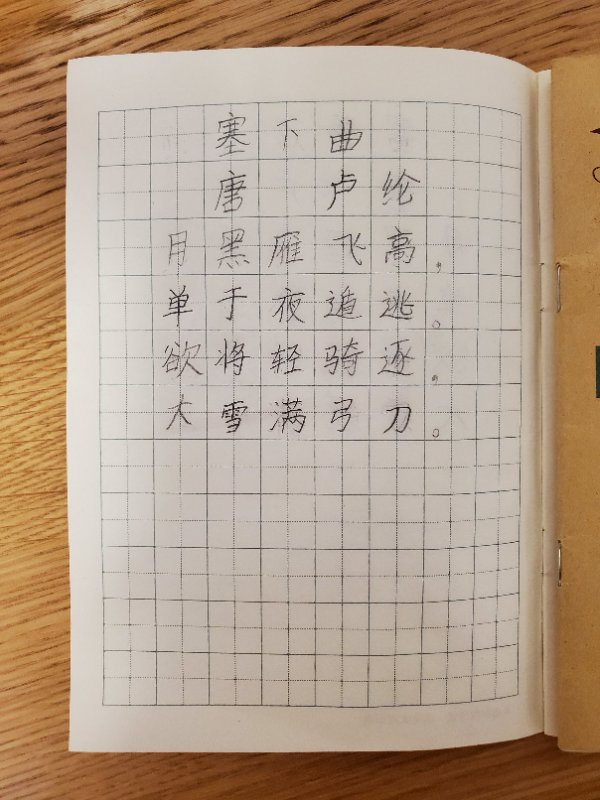 塞下曲
唐 卢纶
月黑雁飞高，
单于夜遁逃。
欲将轻骑逐，
大雪满弓刀。